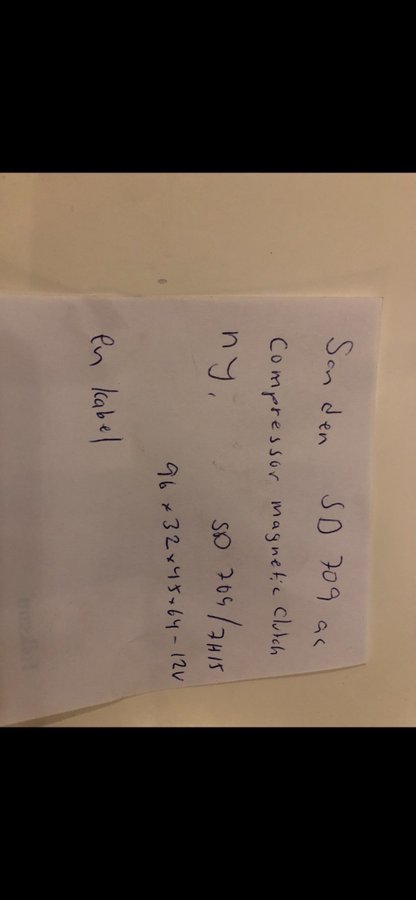 Sanden SD 709 ac
Compressor magnetic Clutch
ny. SD 709/7H15
96 x 32 x 45 x 64 - 12V
en kabel